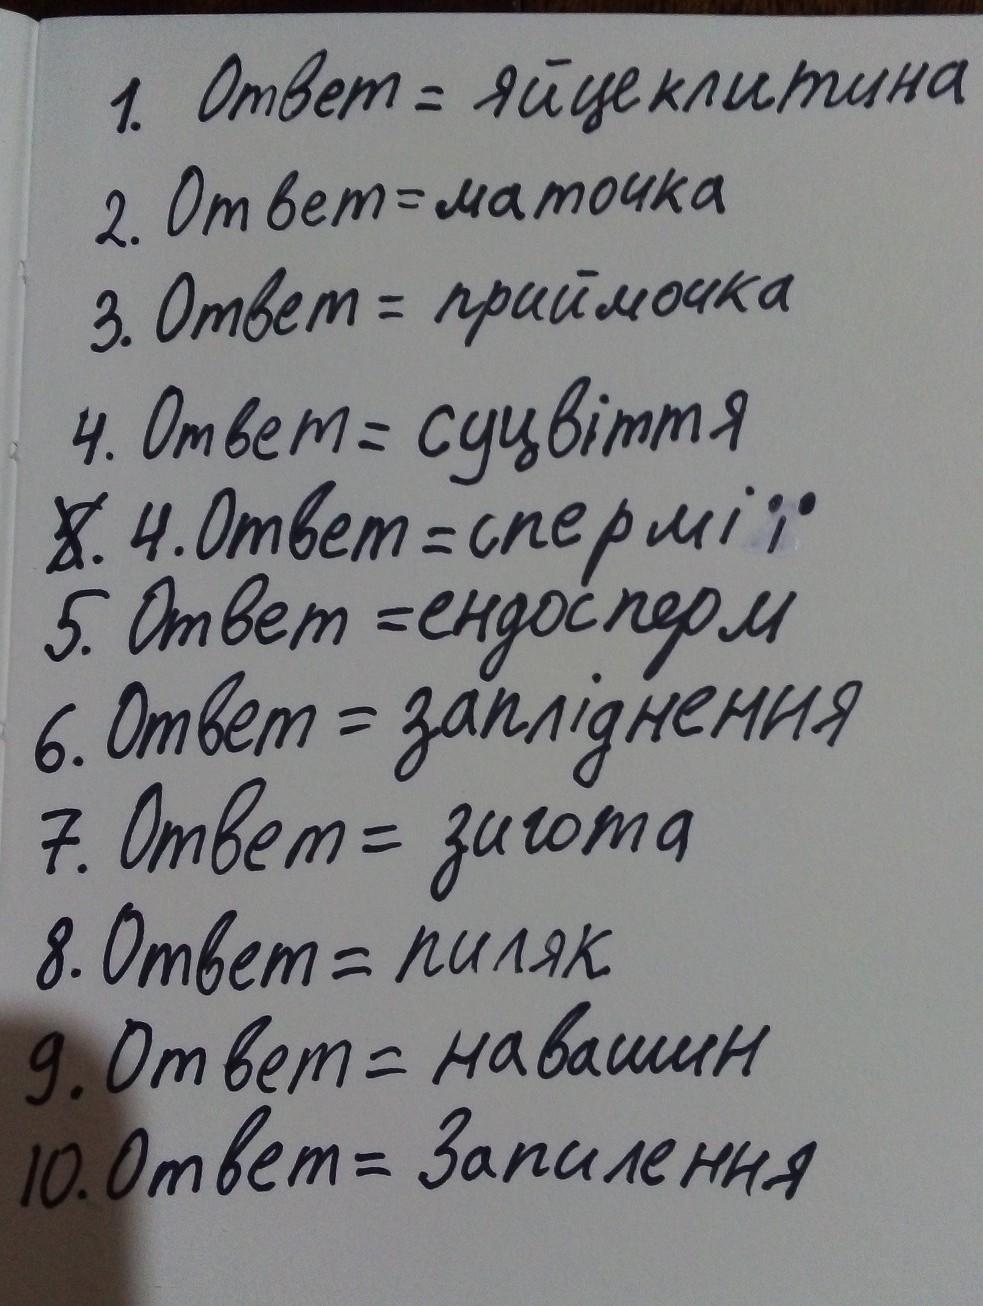 1. Ответ = яйцеклитина
2. Ответ = маточка
3. Ответ = приймочка
4. Ответ = суцвіття
4. Ответ = спермії
5. Ответ = ендосперм
6. Ответ = запліднення
7. Ответ = зигота
8. Ответ = пиляк
9. Ответ = навашин
10. Ответ = Запилення